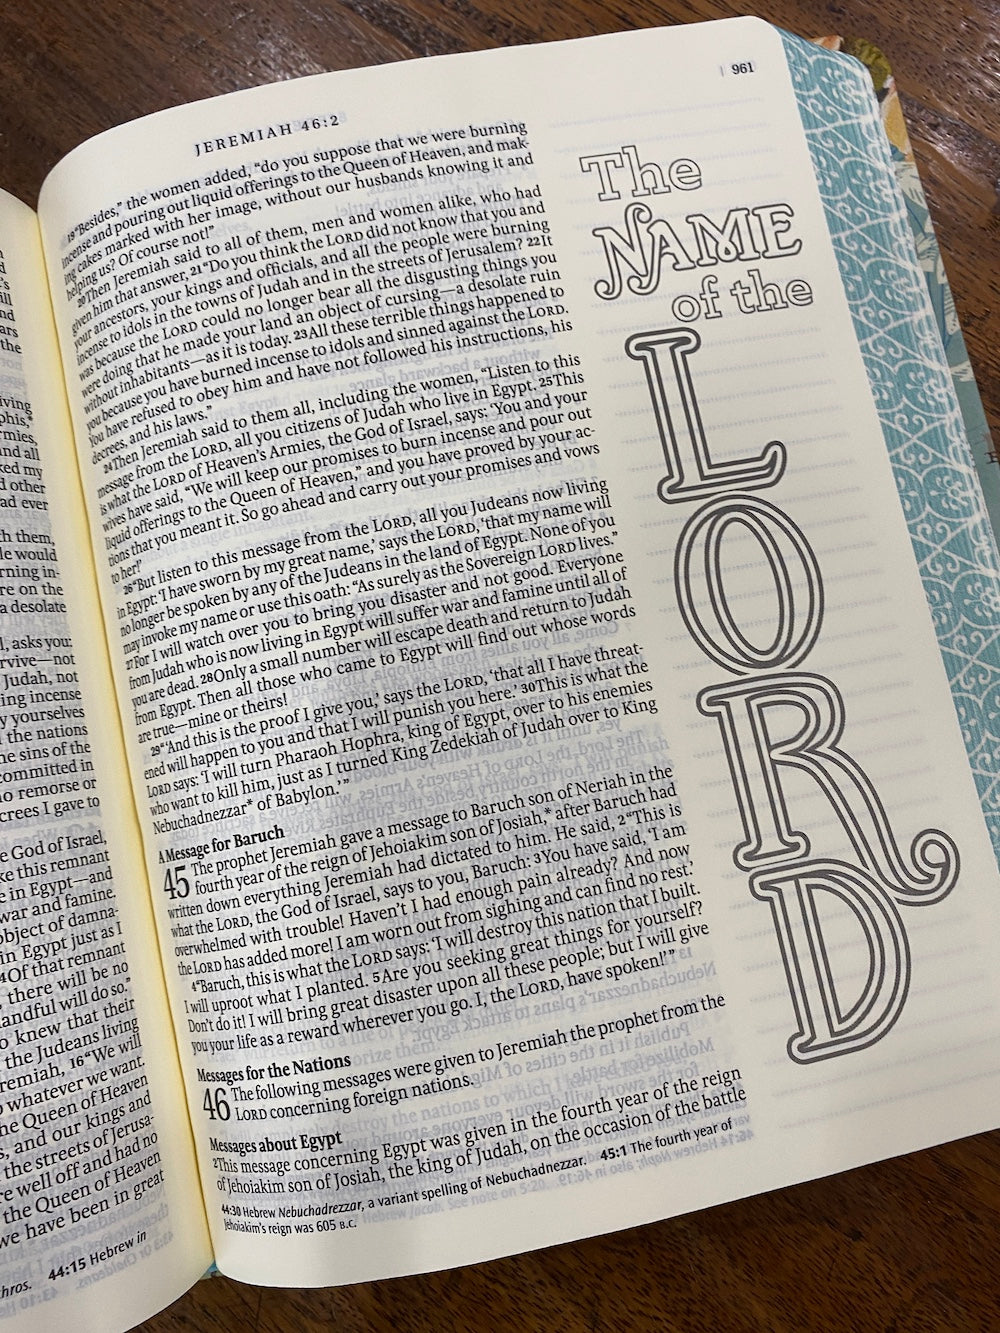 the
iving
phis,*
rmies,
nd all
ked my
d other
ad ever
th them,
le would
rning in-
re on the
a desolate
l, asks you:
rvive—not
Judah, not
ing incense
y yourselves
the nations
e sins of the
committed in
o remorse or
crees I gave to
e God of Israel,
ke this remnant
e in Egypt—and
war and famine.
bject of damna-
in Egypt just as I
4Of that remnant
, there will be no
andful will do so.”
o knew that their
the Judeans living
remiah, 16“We will
whatever we want.
he Queen of Heaven
s, and our kings and
the streets of Jerusa-
re well off and had no
the Queen of Heaven
we have been in great
hros. 44:15 Hebrew in
JEREMIAH 46:2
| 961
19“Besides,” the women added, “do you suppose that we were burning
incense and pouring out liquid offerings to the Queen of Heaven, and mak-
ing cakes marked with her image, without our husbands knowing it and
helping us? Of course not!”
20Then Jeremiah said to all of them, men and women alike, who had
given him that answer, 21“Do you think the LORD did not know that you and
your ancestors, your kings and officials, and all the people were burning
incense to idols in the towns of Judah and in the streets of Jerusalem? 22It
was because the LORD could no longer bear all the disgusting things you
were doing that he made your land an object of cursing—a desolate ruin
without inhabitants—as it is today. 23All these terrible things happened to
you because you have burned incense to idols and sinned against the LORD.
You have refused to obey him and have not followed his instructions, his
decrees, and his laws.”
24Then Jeremiah said to them all, including the women, “Listen to this
message from the LORD, all you citizens of Judah who live in Egypt. 25This
is what the LORD of Heaven’s Armies, the God of Israel, says: ‘You and your
wives have said, “We will keep our promises to burn incense and pour out
liquid offerings to the Queen of Heaven,” and you have proved by your ac-
tions that you meant it. So go ahead and carry out your promises and vows
to her!’
26“But listen to this message from the LORD, all you Judeans now living
in Egypt: ‘I have sworn by my great name,’ says the LORD, ‘that my name will
no longer be spoken by any of the Judeans in the land of Egypt. None of you
may invoke my name or use this oath: “As surely as the Sovereign LORD lives.”
27For I will watch over you to bring you disaster and not good. Everyone
from Judah who is now living in Egypt will suffer war and famine until all of
you are dead. 28Only a small number will escape death and return to Judah
from Egypt. Then all those who came to Egypt will find out whose words
are true—mine or theirs!
29“‘And this is the proof I give you,’ says the LORD, ‘that all I have threat-
ened will happen to you and that I will punish you here.’ 30This is what the
LORD says: ‘I will turn Pharaoh Hophra, king of Egypt, over to his enemies
who want to kill him, just as I turned King Zedekiah of Judah over to King
Nebuchadnezzar* of Babylon.’”
A Message for Baruch
45 The prophet Jeremiah gave a message to Baruch son of Neriah in the
fourth year of the reign of Jehoiakim son of Josiah,* after Baruch had
written down everything Jeremiah had dictated to him. He said, 2“This is
what the LORD, the God of Israel, says to you, Baruch: 3You have said, ‘I am
overwhelmed with trouble! Haven’t I had enough pain already? And now
the LORD has added more! I am worn out from sighing and can find no rest.’
4“Baruch, this is what the LORD says: ‘I will destroy this nation that I built.
I will uproot what I planted. 5Are you seeking great things for yourself?
Don’t do it! I will bring great disaster upon all these people; but I will give
you your life as a reward wherever you go. I, the LORD, have spoken!’”
Messages for the Nations
46 The following messages were given to Jeremiah the prophet from the
LORD concerning foreign nations.
Messages about Egypt
2This message concerning Egypt was given in the fourth year of the reign
of Jehoiakim son of Josiah, the king of Judah, on the occasion of the battle
44:30 Hebrew Nebuchadrezzar, a variant spelling of Nebuchadnezzar. 45:1 The fourth year of
Jehoiakim’s reign was 605 B.C.
The
NAME
of the
LORD